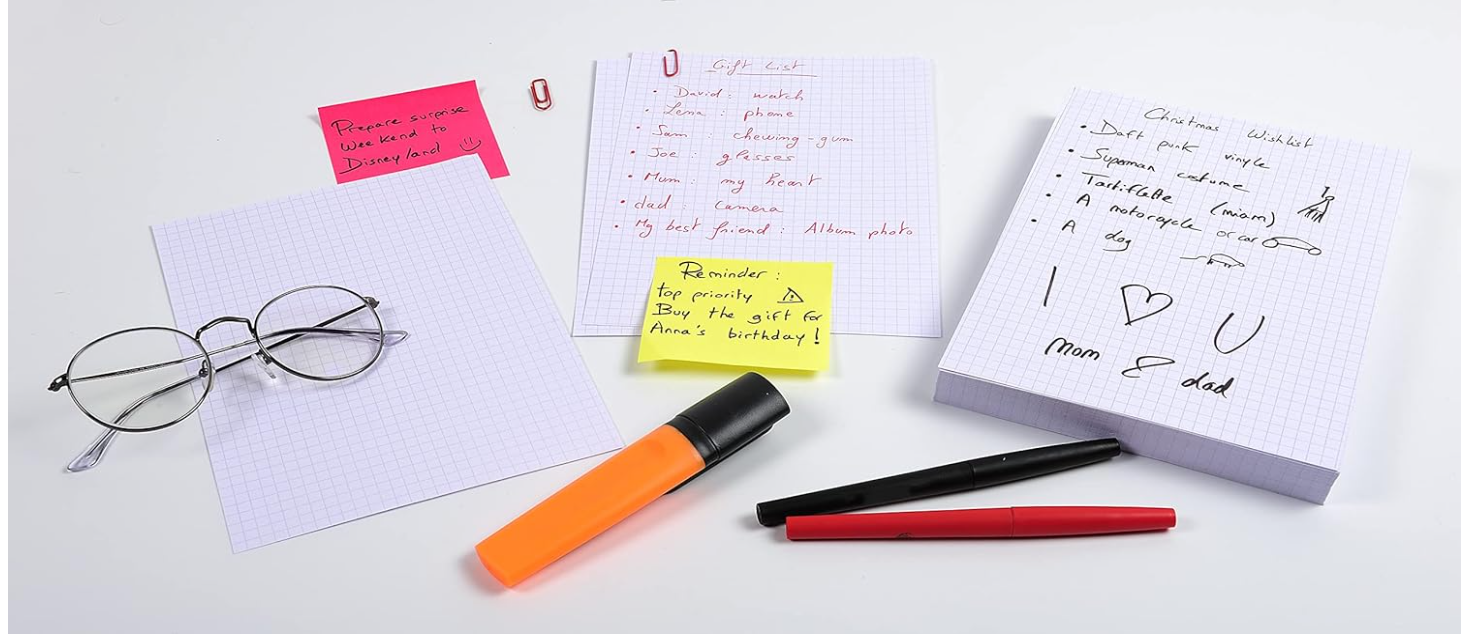 Prepare surprise
Weekend to
Disneyland
Gift List
• David : watch
• Lena : phone
• Sam : chewing-gum
• Joe : glasses
• Mum : my heart
• dad : camera
• My best friend : Album photo
Reminder :
top priority
Buy the gift for
Anna's birthday !
Christmas Wishlist
• Daft punk vinyle
• Superman costume
• Tartiflette (miam)
• A motorcycle or car
• A dog
I ♡ U
Mom & dad